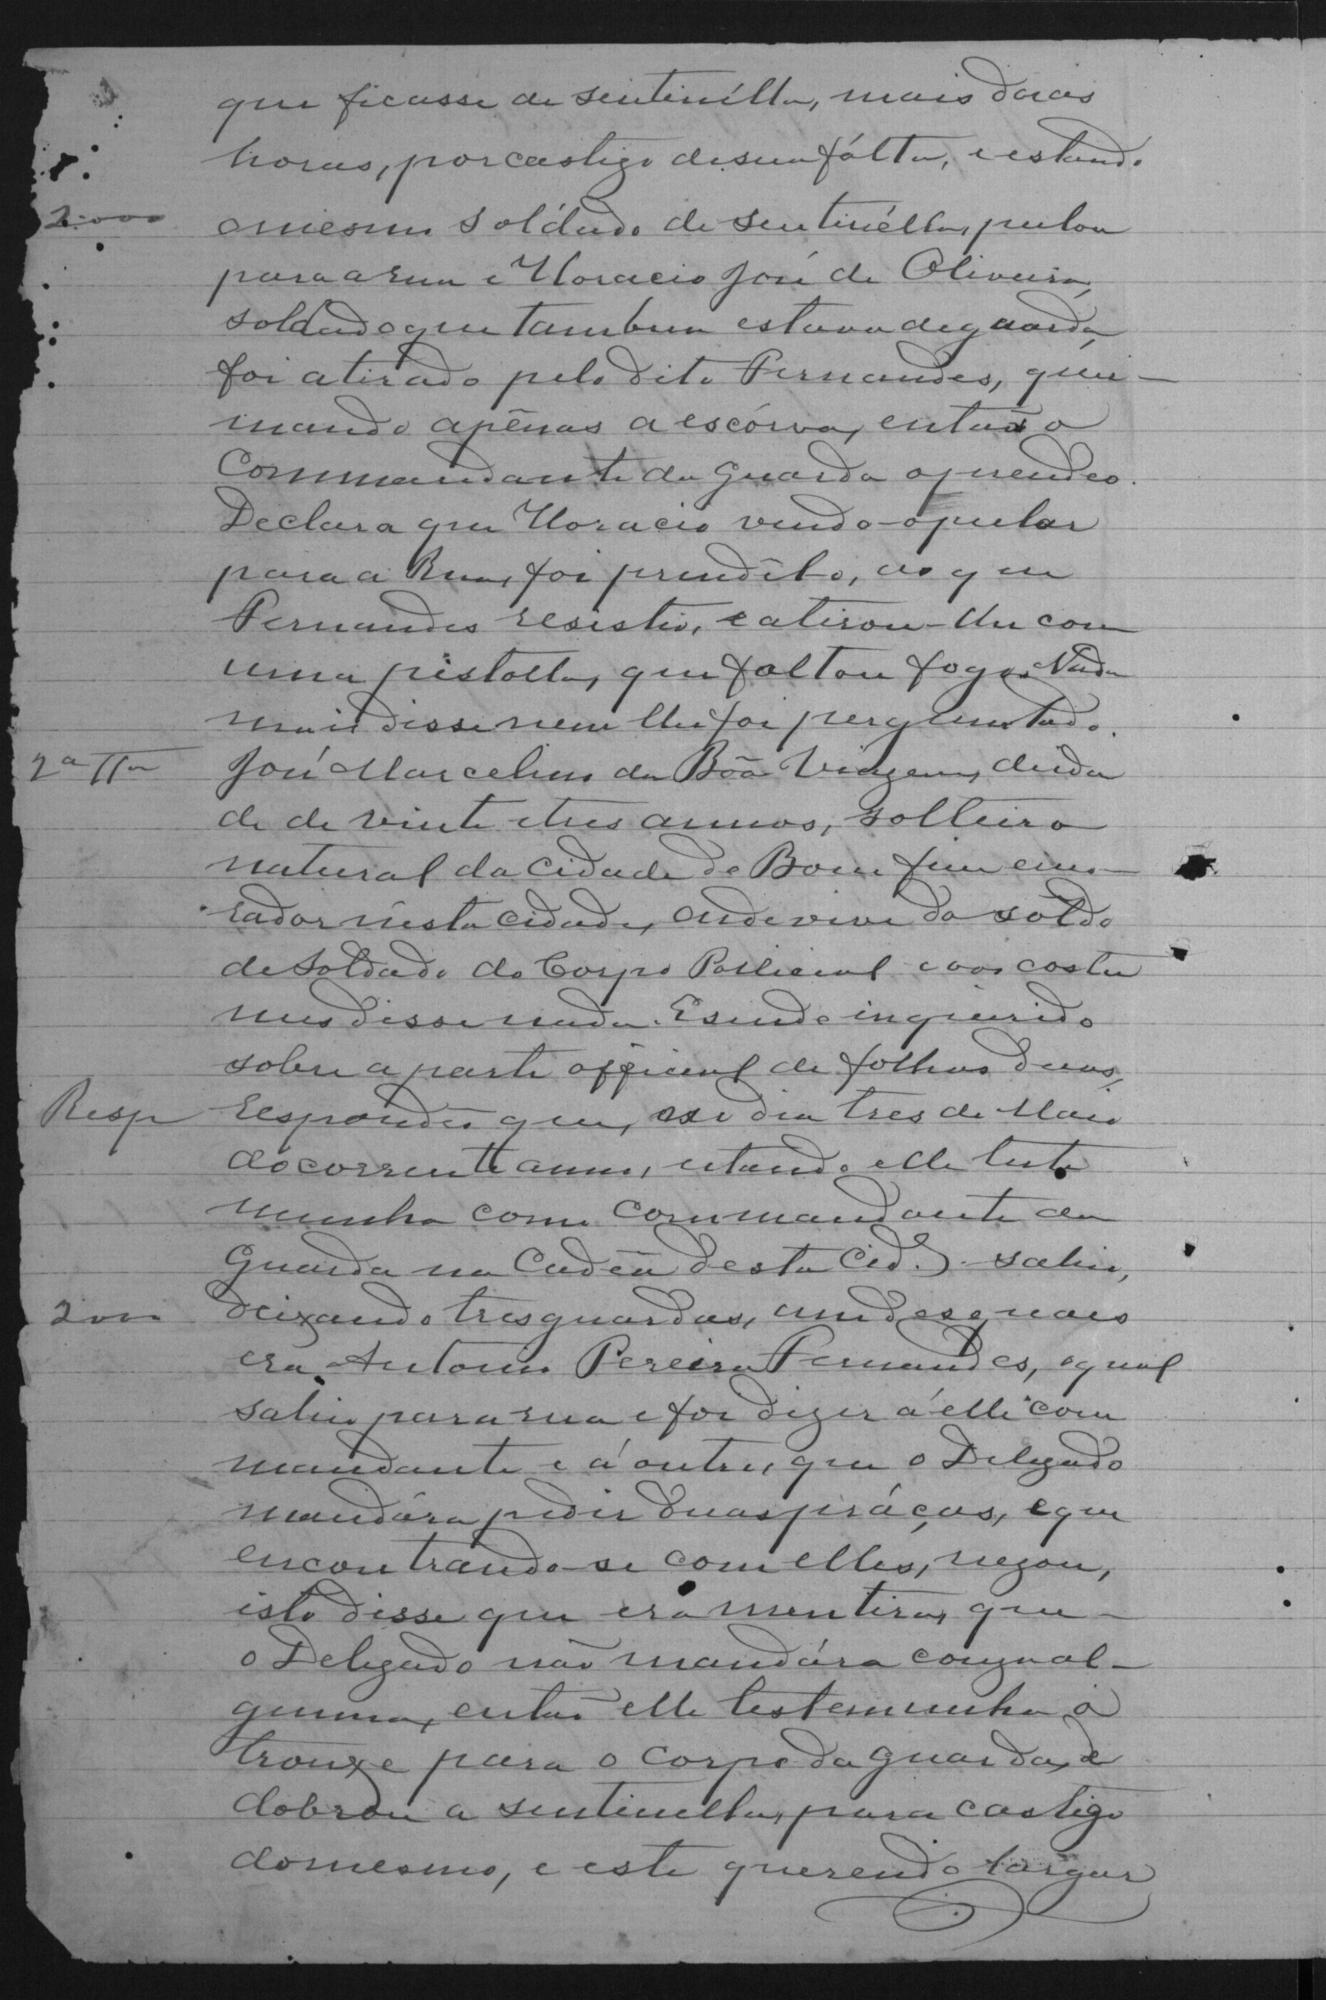 que ficasse de sentinélla, mais duas
horas, por castigo de sua fálta, e estando
2.000
o mesmo soldado de sentinélla, pulou
para a rua e Horacio José de Oliveira,
soldado que tambem estava de guarda,
foi atirado pelo dito Fernandes, quei-
mando apênas a escórva, então o
Commandante da guarda o prendeo.
Declara que Horacio vendo-o pular
para a Rua, foi prendêl-o, ao que
Fernandes resistio, e atirou-lhe com
uma pistolla, que faltou fogo. Nada
mais disse nem lhe foi perguntado.
2ª Ttª
José Marcelino da Bôa Viagem, de ida
de de vinte e tres annos, solteiro
natural da cidade de Bom fim e mo-
rador nésta cidade, onde vive do soldo
de soldado do Corpo Policial e aos costu
mes disse nada. E sendo inquirido
sobre a parte official de folhas duas,
Resp
respondeo que, no dia tres de Maio
do corrente anno, estando elle teste
munha como commandante da
Guarda na Cadêa desta Cid.e sahio,
2000
deixando tres guardas, um dos quaes
era Antonio Pereira Fernandes, o qual
sahio para rua e foi dizer á elle com
mandante e á outro, que o Delegado
mandára pedir duas práças, e que
encontrando-se com elles, negou,
isto disse que era mentira, que
o Delegado não mandára cousa al-
guma, então elle testemunha o
trouxe para o corpo da guarda, e
dobrou a sentinella, para castigo
do mesmo, e este querendo largar